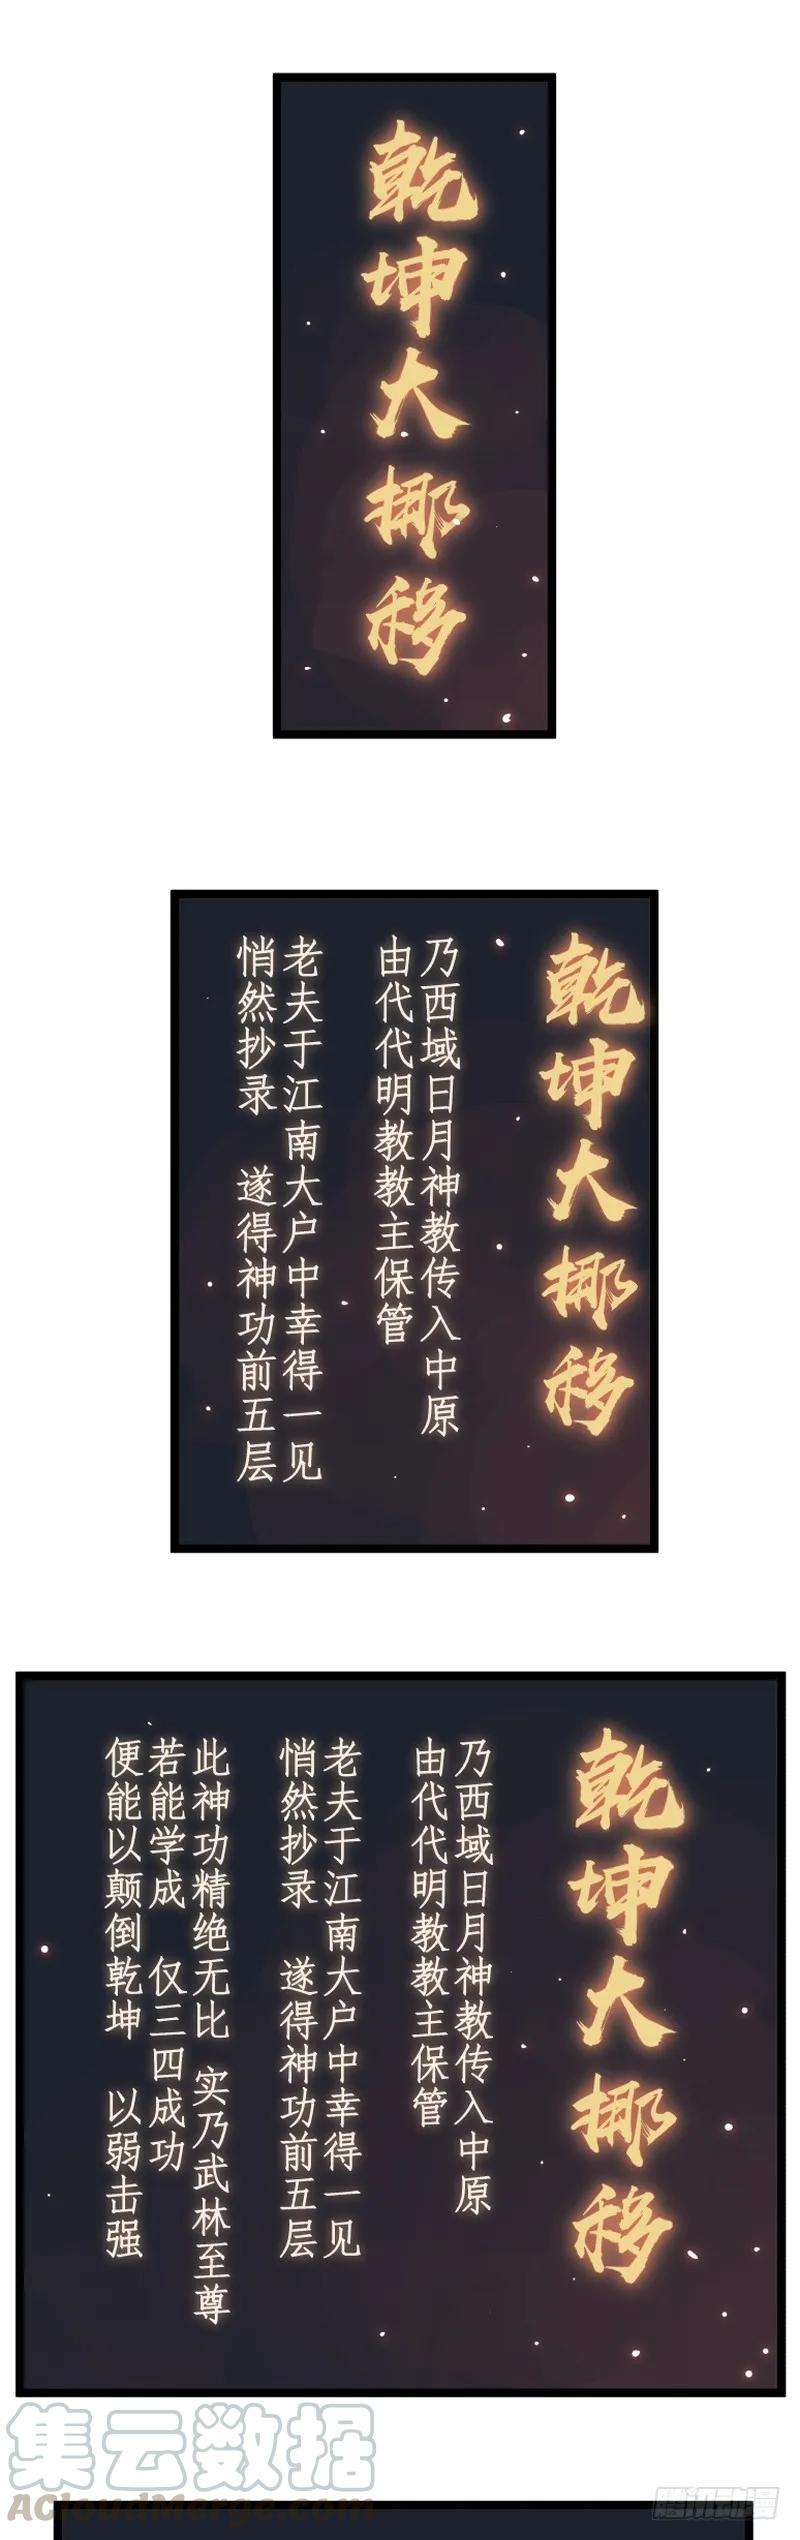 乾坤大挪移
乾坤大挪移
乃西域日月神教传入中原
由代代明教教主保管
老夫于江南大户中幸得一见
悄然抄录 遂得神功前五层
乾坤大挪移
乃西域日月神教传入中原
由代代明教教主保管
老夫于江南大户中幸得一见
悄然抄录 遂得神功前五层
此神功精绝无比 实乃武林至尊
若能学成 仅三四成功
便能以颠倒乾坤 以弱击强
集云数据
AcloudMerge.com
腾讯动漫